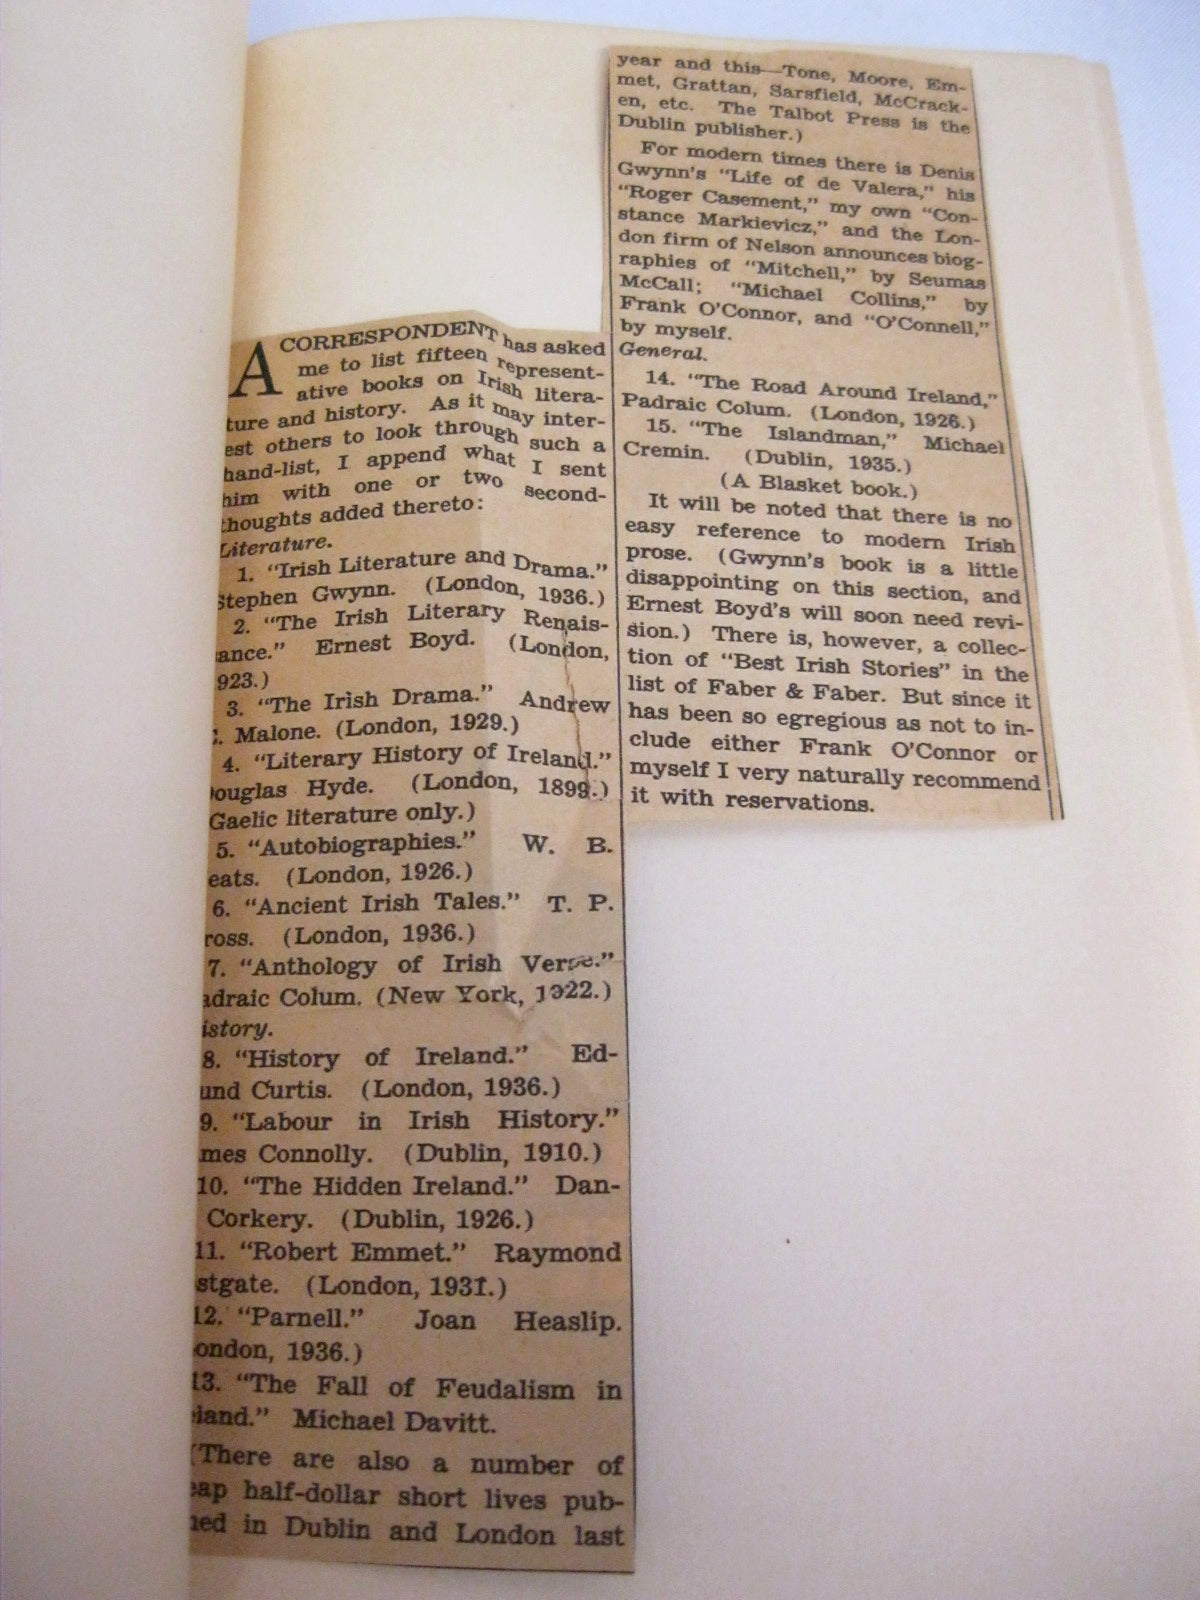 A CORRESPONDENT has asked
me to list fifteen represent-
ative books on Irish litera-
ture and history. As it may inter-
est others to look through such a
hand-list, I append what I sent
him with one or two second-
thoughts added thereto:
Literature.
1. “Irish Literature and Drama.”
Stephen Gwynn. (London, 1936.)
2. “The Irish Literary Renais-
ance.” Ernest Boyd. (London,
923.)
3. “The Irish Drama.” Andrew
. Malone. (London, 1929.)
4. “Literary History of Ireland.”
ouglas Hyde. (London, 1899.)
Gaelic literature only.)
5. “Autobiographies.” W. B.
eats. (London, 1926.)
6. “Ancient Irish Tales.” T. P.
ross. (London, 1936.)
7. “Anthology of Irish Verse.”
adraic Colum. (New York, 1922.)
istory.
8. “History of Ireland.” Ed-
und Curtis. (London, 1936.)
9. “Labour in Irish History.”
mes Connolly. (Dublin, 1910.)
10. “The Hidden Ireland.” Dan-
Corkery. (Dublin, 1926.)
11. “Robert Emmet.” Raymond
stgate. (London, 1931.)
12. “Parnell.” Joan Heaslip.
ondon, 1936.)
13. “The Fall of Feudalism in
land.” Michael Davitt.
(There are also a number of
eap half-dollar short lives pub-
hed in Dublin and London last
year and this—Tone, Moore, Em-
met, Grattan, Sarsfield, McCrack-
en, etc. The Talbot Press is the
Dublin publisher.)
For modern times there is Denis
Gwynn’s “Life of de Valera,” his
“Roger Casement,” my own “Con-
stance Markievicz,” and the Lon-
don firm of Nelson announces biog-
raphies of “Mitchell,” by Seumas
McCall; “Michael Collins,” by
Frank O’Connor, and “O’Connell,”
by myself.
General.
14. “The Road Around Ireland,”
Padraic Colum. (London, 1926.)
15. “The Islandman,” Michael
Cremin. (Dublin, 1935.)
(A Blasket book.)
It will be noted that there is no
easy reference to modern Irish
prose. (Gwynn’s book is a little
disappointing on this section, and
Ernest Boyd’s will soon need revi-
sion.) There is, however, a collec-
tion of “Best Irish Stories” in the
list of Faber & Faber. But since it
has been so egregious as not to in-
clude either Frank O’Connor or
myself I very naturally recommend
it with reservations.